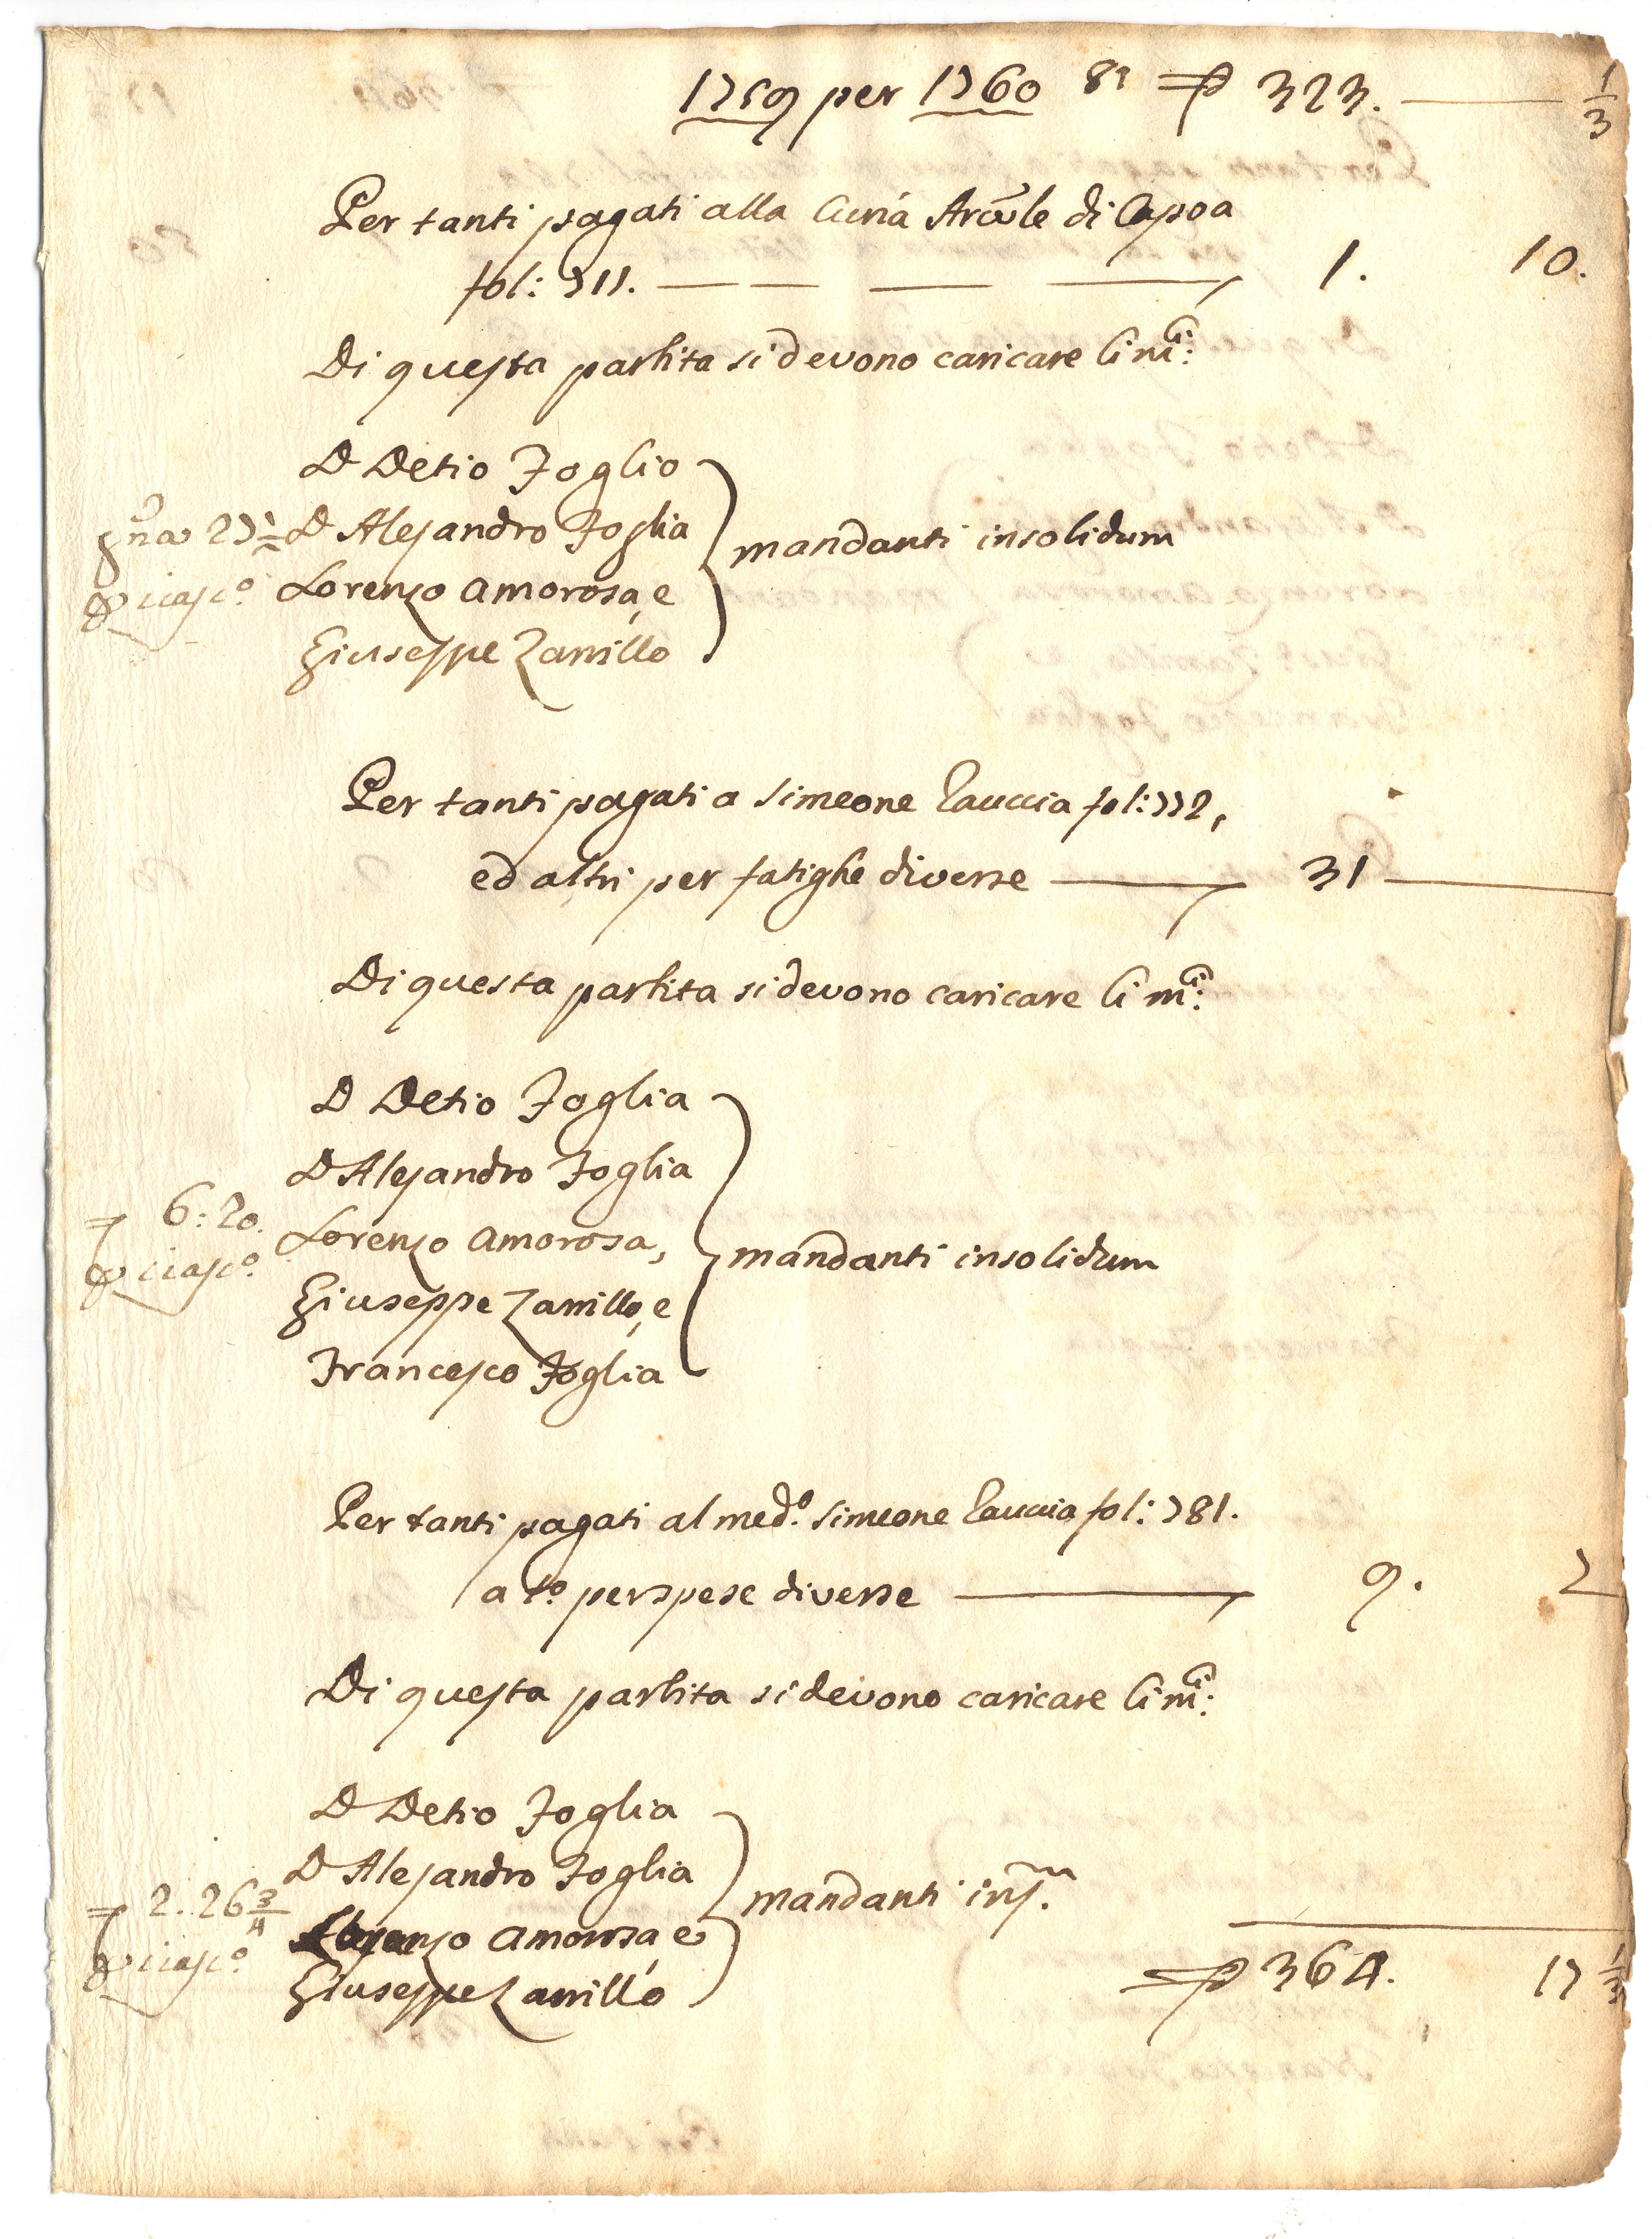 1759 per 1760 81 ₽ 323. — 1/3
Per tanti pagati alla Curia Arcvle di Capoa
fol: 711. — 1. 10.
Di questa partita si devono caricare li mci:
D Detio Foglio
gna 27½ D Alesandro Foglia
Lorenzo Amorosa, e
Giuseppe Zarrillo
mandanti insolidum
Per tanti pagati a Simeone Cauccia fol: 772,
ed altri per fatighe diverse — 31 —
Di questa partita si devono caricare li mci:
D Detio Foglia
D Alesandro Foglia
6: 20. Lorenzo Amorosa,
Giuseppe Zarrillo, e
Francesco Foglia
mandanti insolidum
Per tanti pagati al medo. Simeone Cauccia fol: 781.
a to per spese diverse — 9. 7
Di questa partita si devono caricare li mci:
D Detio Foglia
D Alesandro Foglia
2. 26 3/4 Lorenzo Amorosa e
Giuseppe Zarrillo
mandanti insm.
₽ 364. 17 1/3